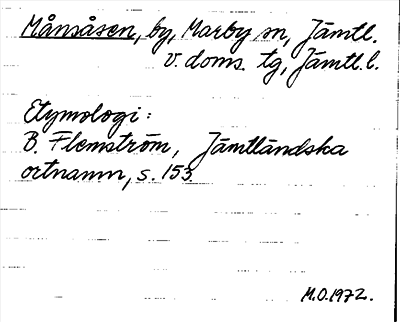 Månsåsen, by, Marby sn, Jämtl.
v. doms. tg, Jämtl. l.
Etymologi:
B. Flemström, Jämtländska
ortnamn, s. 153.
M.O. 1972.